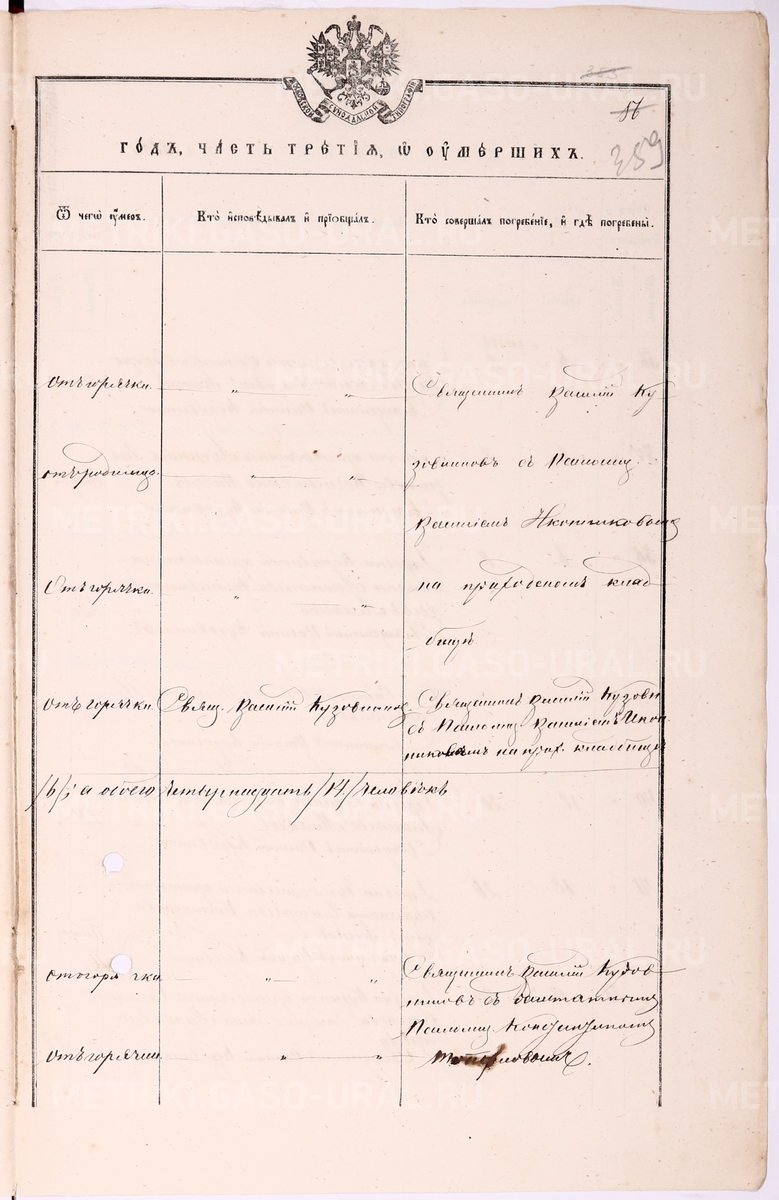 385
86
359
ГОДЪ, ЧАСТЬ ТРЕТІЯ, Ѿ ОУМЕРШИХЪ.
Ѿ чегѡ оумеръ.
Кто исповѣдывалъ и пріобщалъ.
Кто совершалъ погребеніе, и гдѣ погребены.
Отъ горячки. „ „ Священникъ Василій Ку
отъ родимца. „ „ зовниковъ съ Псаломщ.
Василіемъ Иконниковымъ
Отъ горячки. „ „ на приходскомъ клад
бищѣ
отъ горячки. Свящ. Василій Кузовниковъ
Священникъ Василій Кузовни
съ Псаломщ. Василіемъ Икон
никовымъ на прих. кладбищѣ
/6/; а обоего четырнадцать /14/ человѣкъ
отъ горячки „ „ Священникъ Василій Кузов
никовъ съ заштатнымъ
Псаломщ.
отъ горячки „ „
METRIKI.GASO-URAL.RU